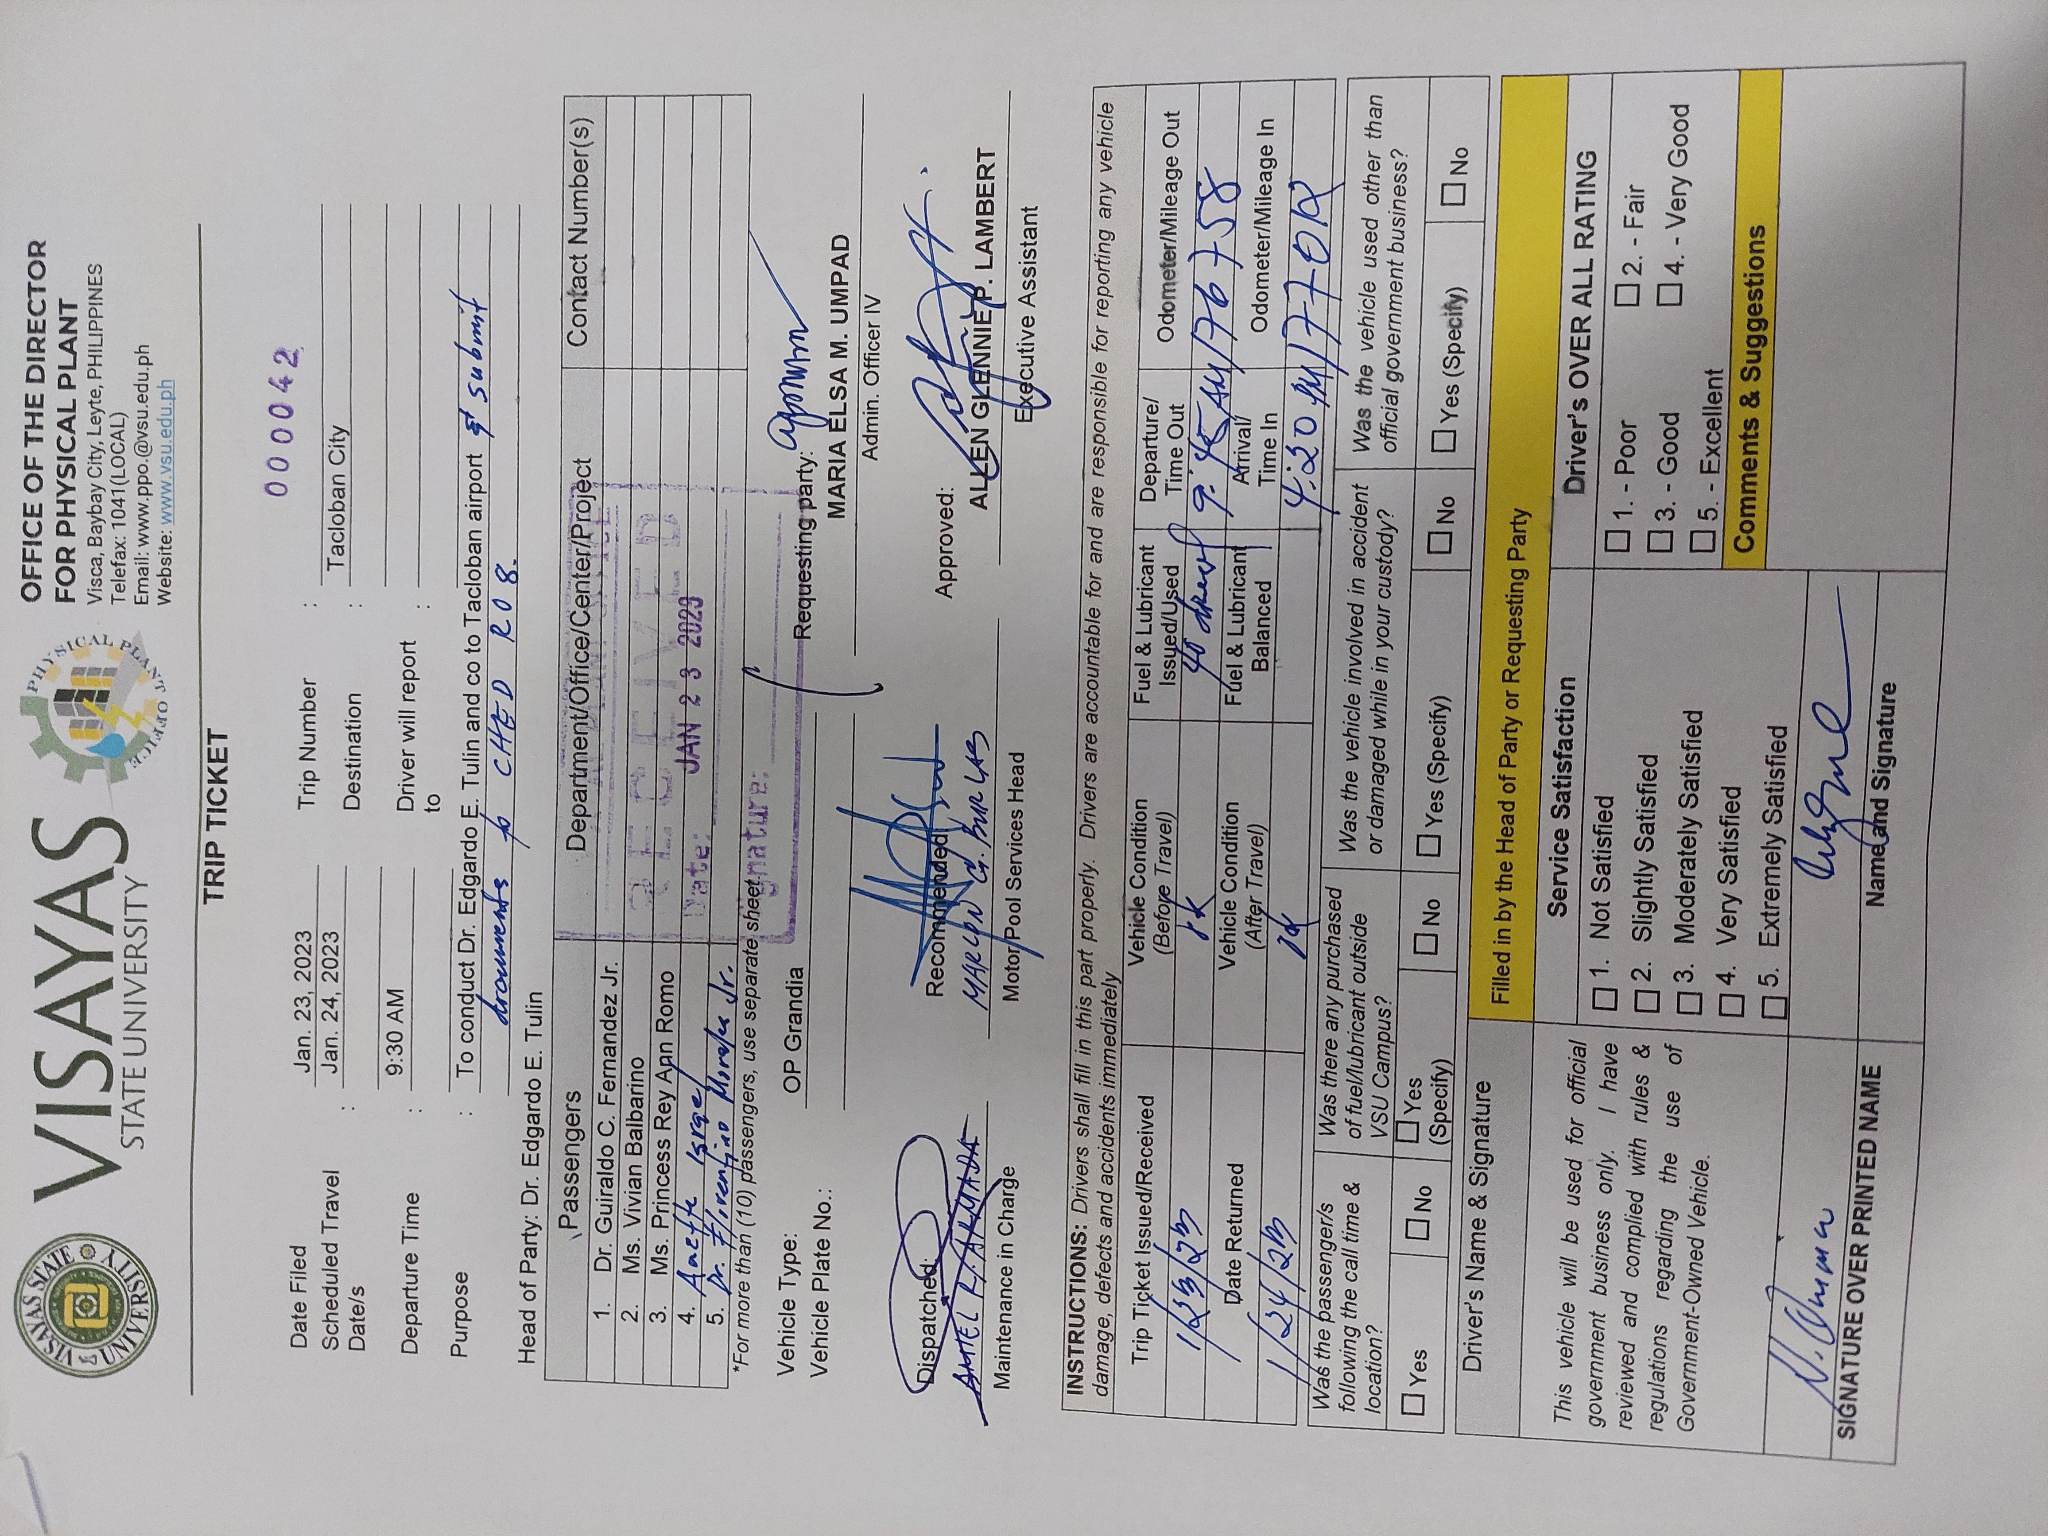 VISAYAS STATE UNIVERSITY
VISAYAS
STATE UNIVERSITY
PHYSICAL PLANT OFFICE
OFFICE OF THE DIRECTOR
FOR PHYSICAL PLANT
Visca, Baybay City, Leyte, PHILIPPINES
Telefax: 1041(LOCAL)
Email: www.ppo.@vsu.edu.ph
Website: www.vsu.edu.ph
TRIP TICKET
Date Filed Jan. 23, 2023 Trip Number : 000042
Scheduled Travel Date/s : Jan. 24, 2023 Destination : Tacloban City
Departure Time : 9:30 AM Driver will report to :
Purpose : To conduct Dr. Edgardo E. Tulin and co to Tacloban airport & submit
documents to CHED RO8.
Head of Party: Dr. Edgardo E. Tulin
Passengers Department/Office/Center/Project Contact Number(s)
1. Dr. Guiraldo C. Fernandez Jr.
2. Ms. Vivian Balbarino
3. Ms. Princess Rey Ann Romo
4. Anette Israel
5. Dr. Florentino Morales Jr.
RECEIVED
Date: JAN 23 2023
*For more than (10) passengers, use separate sheet.
Vehicle Type: OP Grandia
Vehicle Plate No.:
Requesting party:
MARIA ELSA M. UMPAD
Admin. Officer IV
Dispatched: Recommended: Approved:
AMIEL R. ARMADA MARLON G. BURLAS ALLEN GLENNIE P. LAMBERT
Maintenance in Charge Motor Pool Services Head Executive Assistant
INSTRUCTIONS: Drivers shall fill in this part properly. Drivers are accountable for and are responsible for reporting any vehicle
damage, defects and accidents immediately
Trip Ticket Issued/Received Vehicle Condition (Before Travel) Fuel & Lubricant Issued/Used Departure/ Time Out Odometer/Mileage Out
1/23/23 ok 40 diesel 9:45 AM 176758
Date Returned Vehicle Condition (After Travel) Fuel & Lubricant Balanced Arrival/ Time In Odometer/Mileage In
1/24/23 ok 4:20 PM 177012
Was the passenger/s following the call time & location? Was there any purchased of fuel/lubricant outside VSU Campus? Was the vehicle involved in accident or damaged while in your custody? Was the vehicle used other than official government business?
☐ Yes ☐ No ☐ Yes (Specify) ☐ No ☐ Yes (Specify) ☐ No ☐ Yes (Specify) ☐ No
Driver's Name & Signature Filled in by the Head of Party or Requesting Party
This vehicle will be used for official
government business only. I have
reviewed and complied with rules &
regulations regarding the use of
Government-Owned Vehicle.
SIGNATURE OVER PRINTED NAME
Service Satisfaction
☐ 1. Not Satisfied
☐ 2. Slightly Satisfied
☐ 3. Moderately Satisfied
☐ 4. Very Satisfied
☐ 5. Extremely Satisfied
Name and Signature
Driver's OVER ALL RATING
☐ 1. - Poor ☐ 2. - Fair
☐ 3. - Good ☐ 4. - Very Good
☐ 5. - Excellent
Comments & Suggestions